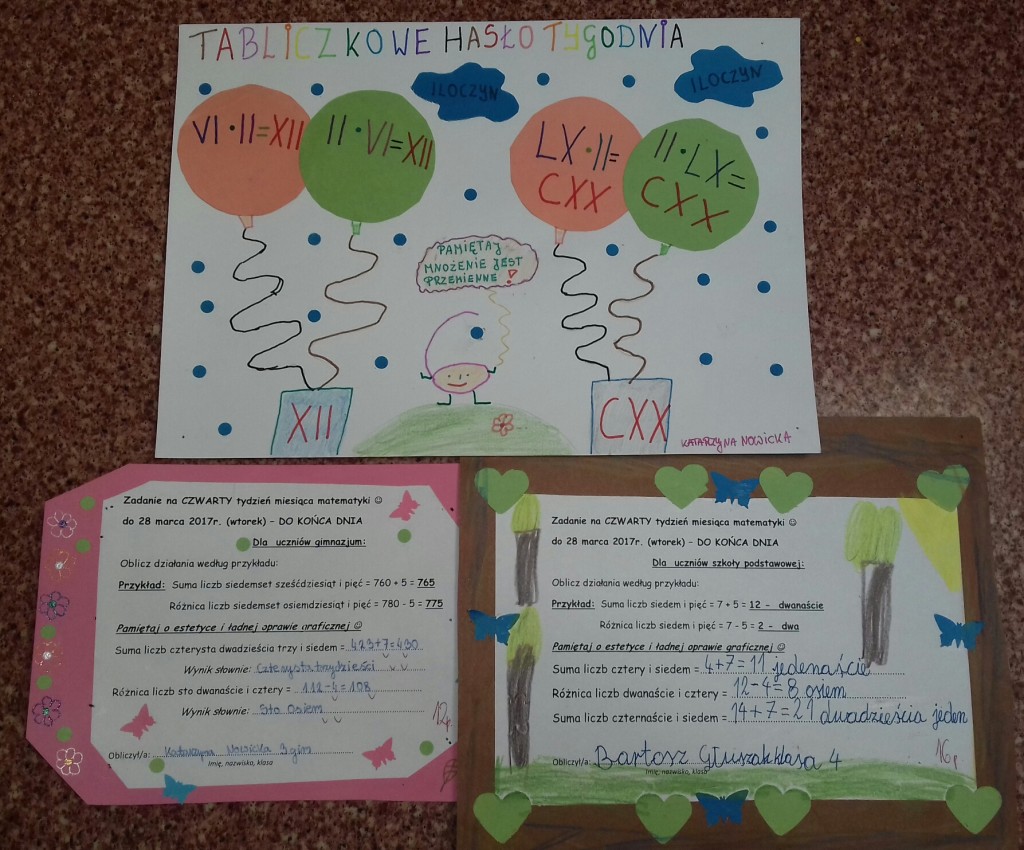 TABLICZKOWE HASŁO TYGODNIA
ILOCZYN
ILOCZYN
VI · II = XII
II · VI = XII
LX · II =
CXX
II · LX =
CXX
PAMIĘTAJ
MNOŻENIE JEST
PRZEMIENNE!
XII
CXX
KATARZYNA NOWICKA
Zadanie na CZWARTY tydzień miesiąca matematyki ☺
do 28 marca 2017r. (wtorek) - DO KOŃCA DNIA
Dla uczniów gimnazjum:
Oblicz działania według przykładu:
Przykład: Suma liczb siedemset sześćdziesiąt i pięć = 760 + 5 = 765
Różnica liczb siedemset osiemdziesiąt i pięć = 780 - 5 = 775
Pamiętaj o estetyce i ładnej oprawie graficznej ☺
Suma liczb czterysta dwadzieścia trzy i siedem = 423+7=430
Wynik słownie: Czterysta trzydzieści
Różnica liczb sto dwanaście i cztery = 112-4=108
Wynik słownie: Sto Osiem
12
Obliczył/a: Katarzyna Nowicka 3 gim
Imię, nazwisko, klasa
Zadanie na CZWARTY tydzień miesiąca matematyki ☺
do 28 marca 2017r. (wtorek) - DO KOŃCA DNIA
Dla uczniów szkoły podstawowej:
Oblicz działania według przykładu:
Przykład: Suma liczb siedem i pięć = 7 + 5 = 12 - dwanaście
Różnica liczb siedem i pięć = 7 - 5 = 2 - dwa
Pamiętaj o estetyce i ładnej oprawie graficznej ☺
Suma liczb cztery i siedem = 4+7=11 jedenaście
Różnica liczb dwanaście i cztery = 12-4=8 osiem
Suma liczb czternaście i siedem = 14+7=21 dwadzieścia jeden
16
Obliczył/a: Bartosz Głuszak klasa 4
Imię, nazwisko, klasa